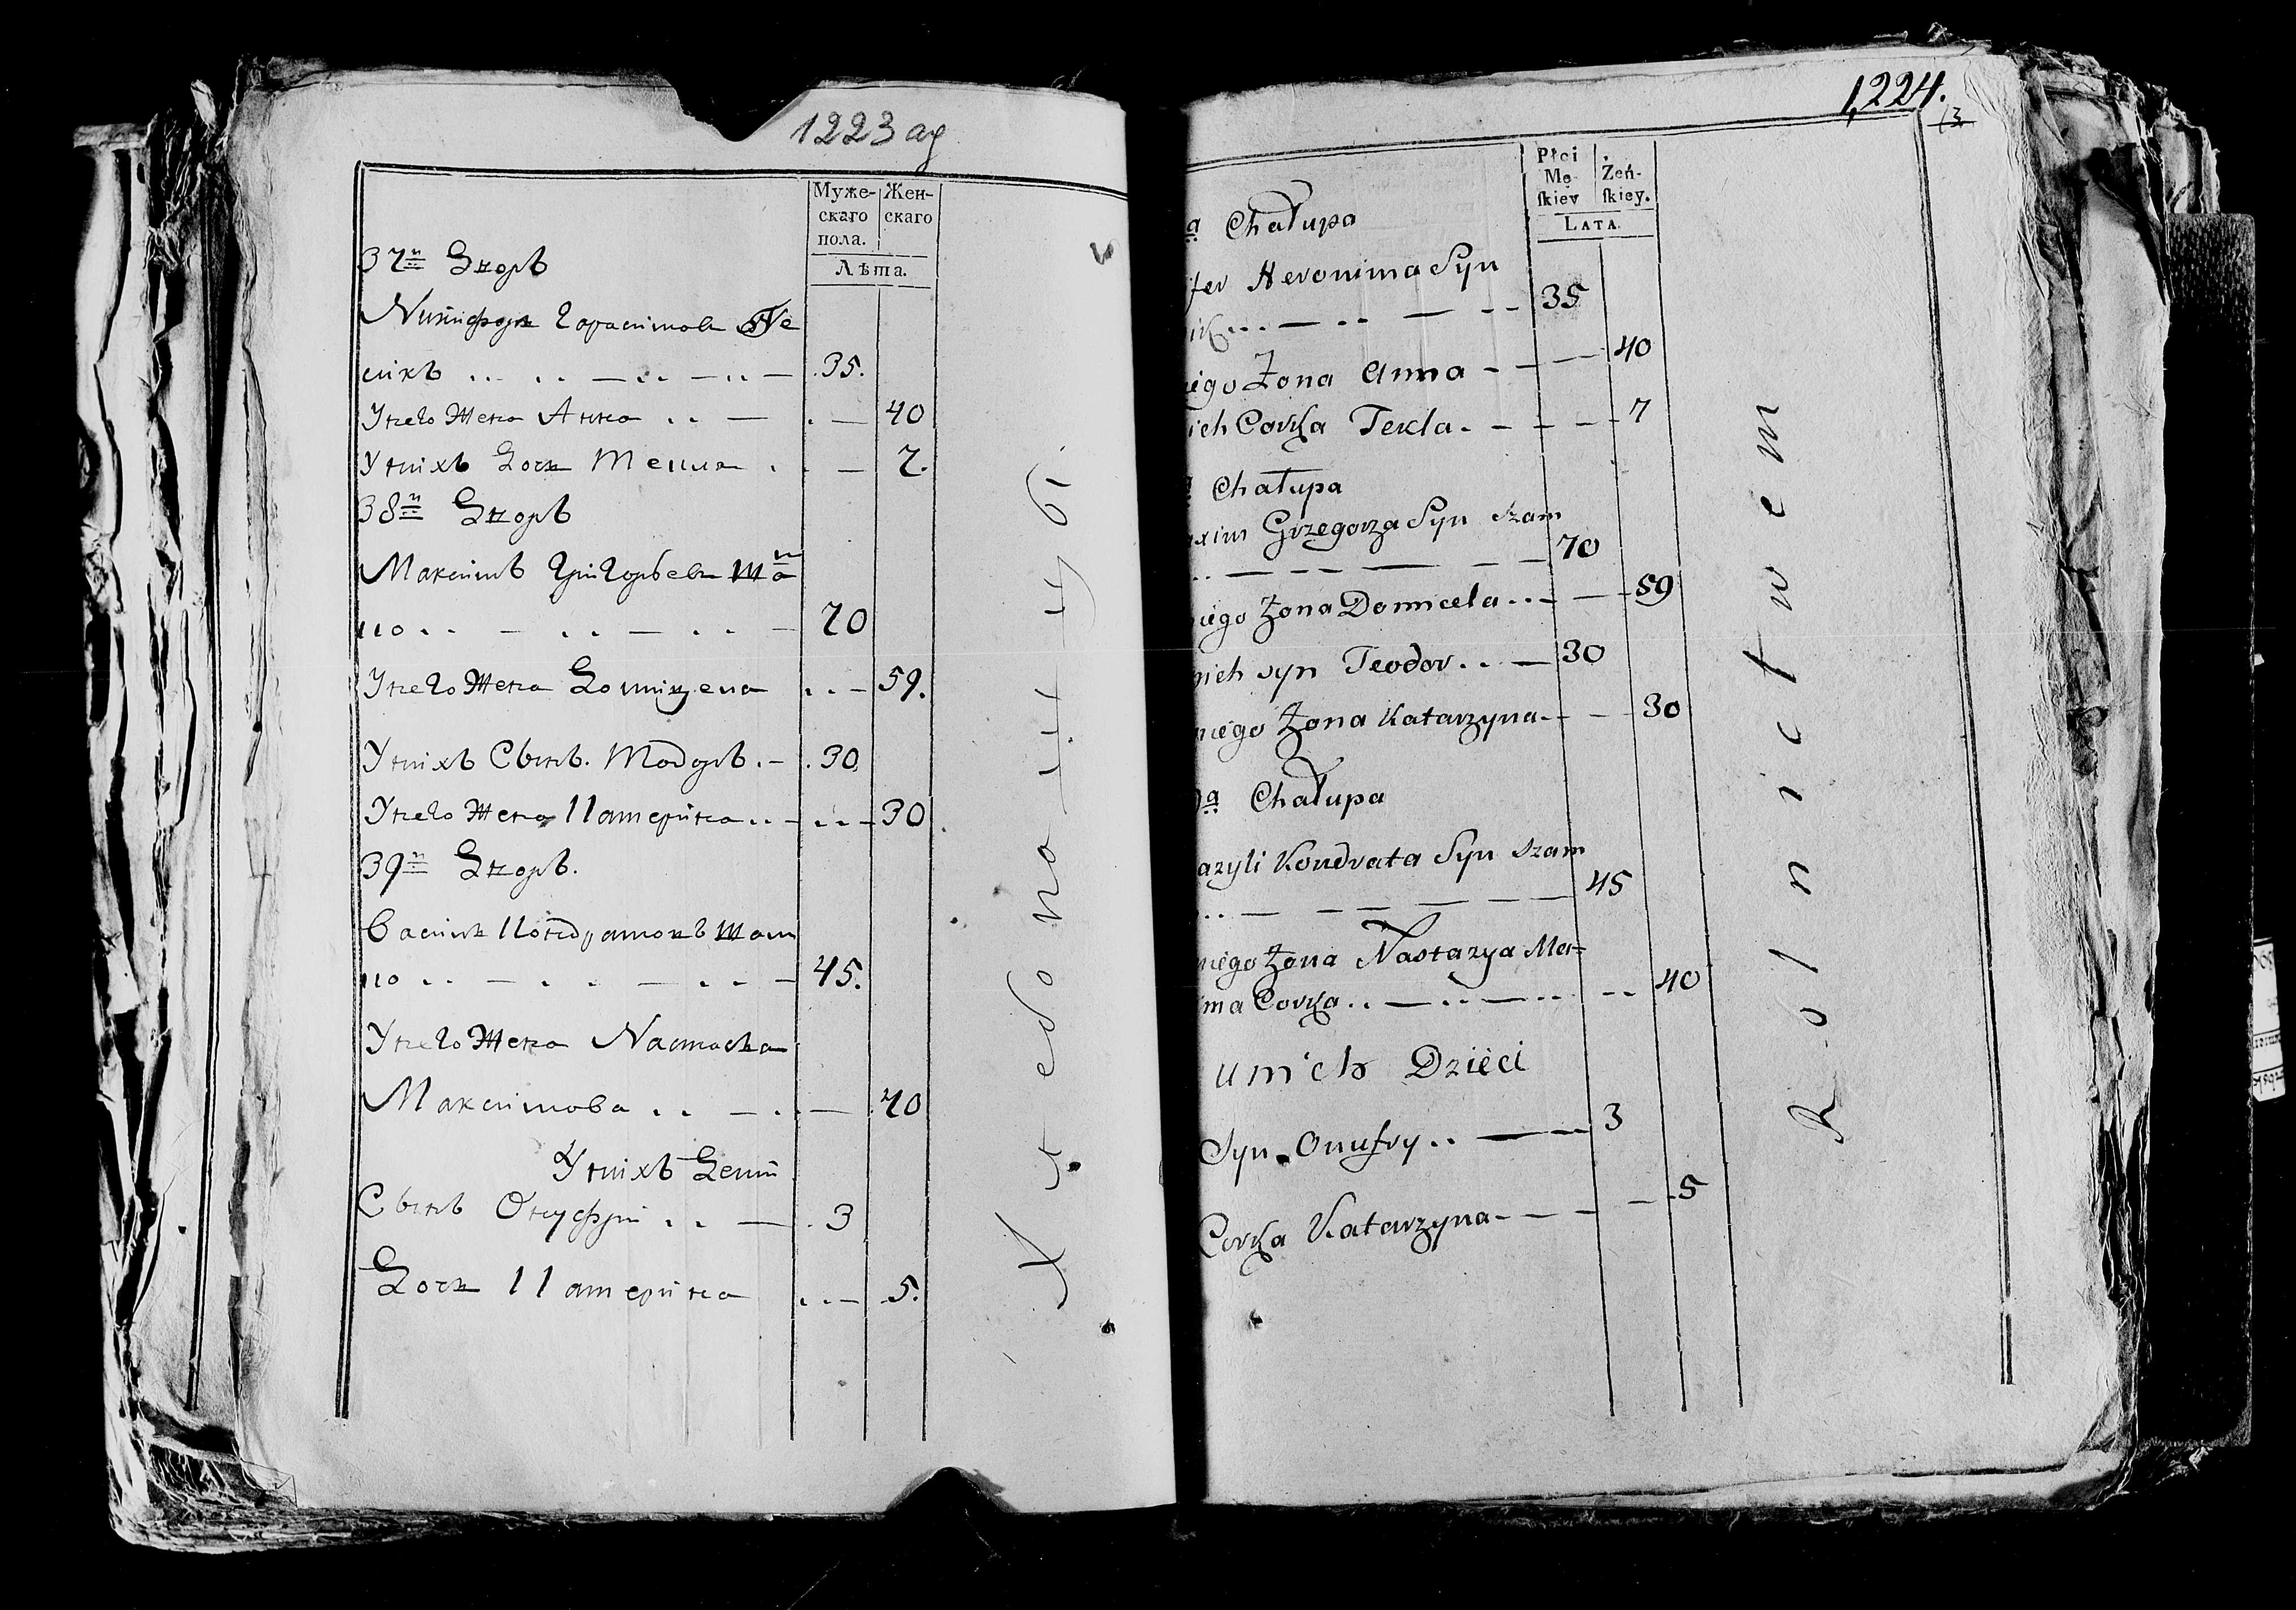 1223 ад
Муже- Жен-
скаго скаго
пола.
Лѣта.
37й Дворъ
Никифоръ Гарасимовъ
сикъ 35.
У него Жена Анна 40
У нихъ Дочь Текла 7.
38й Дворъ
Максимъ Григорьевъ Ша
ло 70
У него Жена Домицела 59.
У нихъ Сынъ Тодоръ 30
У него Жена Катерина 30
39й Дворъ.
Василь Кондратовъ Шам
ло 45.
У него Жена Настасья
Максимова 40
У нихъ Дети
Сынъ Онуфри 3
Дочь Катерина 5.
1,224.
13
Płci Żeń-
Mę- ſkiey.
ſkiey
LATA.
a Chałupa
fer Heronima Syn
35
iego Żona Anna 40
ich Corka Tekla 7
a Chałupa
axim Grzegorza Syn Szam
70
niego Żona Domicela 59
nich syn Teodor 30
niego Żona Katarzyna 30
a Chałupa
azyli Kondrata Syn Szam
45
niego Żona Nastazya Ma=
ma Corka 40
u nich Dzieci
Syn Onufry 3
Corka Katarzyna 5
Rolnictwem